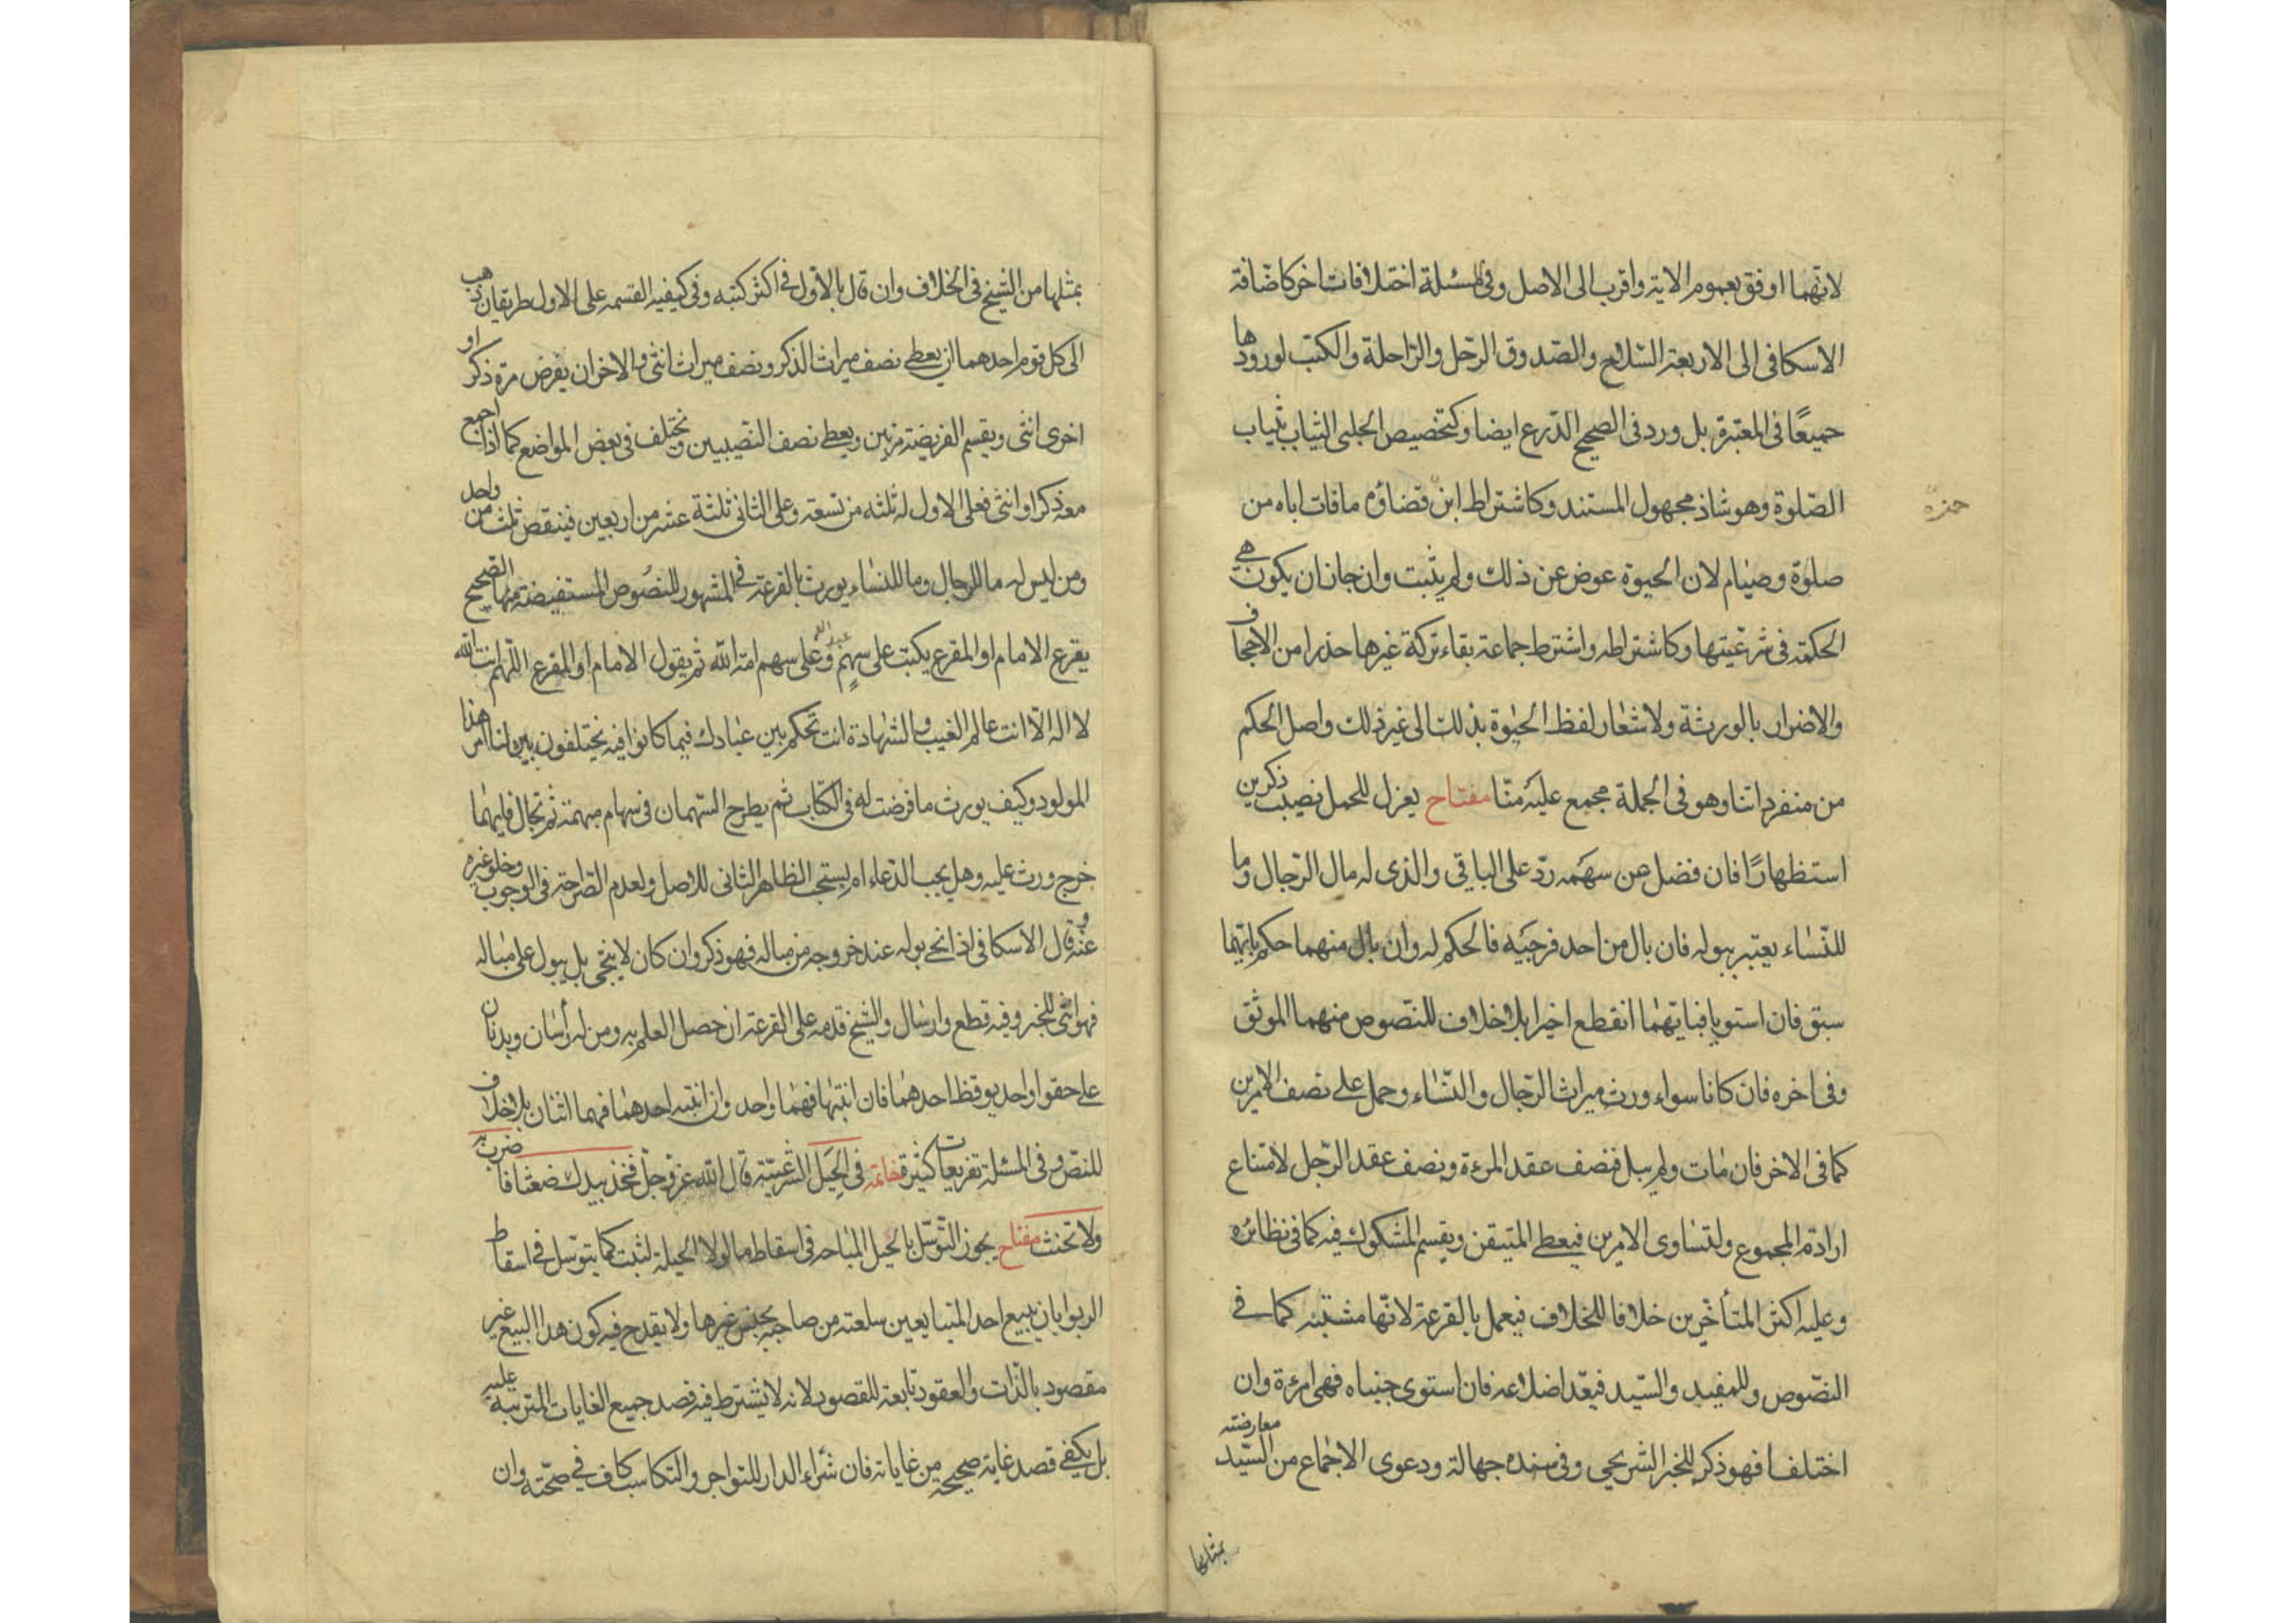 لانهما اوفق بعموم الاية واقرب الى الاصل وفى المسئلة اختلافات اخر كاضافة
الاسكافى الى الاربعة السلاح والصدوق الرحل والراحلة والكتب لورودها
جميعًا فى المعتبرة بل ورد فى الصحيح الدرع ايضا وكتخصيص الحلبى الثياب بثياب
الصلوة وهو شاذ مجهول المستند وكاشتراط ابن قضاؤه ما فات اباه من
حمزه
صلوة وصيام لان الحبوة عوض عن ذلك ولم يثبت وان جاز ان يكون هي
الحكمة فى شرعيتها وكاشتراطه واشتراط جماعة بقاء تركة غيرها حذرا من الاجحاف
والاضرار بالورثة ولاشعار لفظ الحبوة بذلك الى غير ذلك واصل الحكم
من منفرداتنا وهو فى الجملة مجمع عليه منّا مفتاح يعزل للحمل نصيب ذكرين
استظهارًا فان فضل عن سهمه ردّ على الباقى والذى له مال الرجال وما
للنساء يعتبر ببوله فان بال من احد فرجيه فالحكم له وان بال منهما حكم بايهما
سبق فان استويا فبايهما انقطع اخيرا بلا خلاف للنصوص منهما الموثق
وفى اخره فان كانا سواء ورث ميراث الرجال والنساء وحمل على نصف الامرين
كما فى الاخر فان مات ولم يبل فنصف عقد المرءة ونصف عقد الرجل لامتناع
ارادة المجموع ولتساوى الامرين فيعطى المتيقن ويقسم المشكوك فيه كما فى نظائره
وعليه اكثر المتأخرين خلافا للخلاف فيعمل بالقرعة لانها مشتبه كما فى
النصوص وللمفيد والسيد فيعد اضلاعه فان استوى جنباه فهى امرءة وان
اختلفا فهو ذكر للخبر الشريحى وفى سنده جهالة ودعوى الاجماع من السيد معارضته
بمثلها
بمثلها من الشيخ فى الخلاف وان قال بالاول فى اكثر كتبه وفى كيفية القسمة على الاول طريقان ذهب
الى كل قوم احدهما ان يعطى نصف ميراث الذكر ونصف ميراث انثى والاخر ان يفرض مرة ذكر او
اخرى انثى ويقسم الفريضة مرتين ويعطى نصف النصيبين ويختلف فى بعض المواضع كما اذا اجمع
معه ذكر او انثى فعلى الاول له ثلثه من تسعة وعلى الثانى ثلثة عشر من اربعين فينقص ثلث من واحد
ومن ليس له ما للرجال وما للنساء يورث بالقرعة فى المشهور للنصوص المستفيضة منها الصحيح
يقرع الامام او المقرع يكتب على سهم عبد الله وعلى سهم امة الله ثم يقول الامام او المقرع اللهم انت الله
لا اله الا انت عالم الغيب والشهادة انت تحكم بين عبادك فيما كانوا فيه يختلفون بين لنا امر هذا
المولود وكيف يورث ما فرضت له فى الكتاب ثم يطرح السهمان فى سهام مبهمة ثم تجال فايهما
خرج ورث عليه وهل يجب الدعاء ام يستحب الظاهر الثانى للاصل ولعدم الصراحة فى الوجوب وخلو غيره
عنه وقال الاسكافى اذا نحى بوله عند خروجه من مباله فهو ذكر وان كان لا ينحى بل يبول على مباله
فهو انثى للخبر وفيه قطع وارسال والشيخ قدمه على القرعة ان حصل العلم به ومن له رأسان وبدنان
على حقو واحد يوقظ احدهما فان انتبها فهما واحد وان انتبه احدهما فهما اثنان بلا خلاف
للنص وفى المسئلة تفريعات كثيرة خاتمة فى الحيل الشرعية قال الله عز وجل فخذ بيدك ضغثا فاضرب به
ولا تحنث مفتاح يجوز التوسل بالحيل المباحة فى اسقاط ما لولا الحيلة لثبت كما يتوسل فى اسقاط
الربوا بان يبيع احد المتبايعين سلعته من صاحبه بجنس غيرها ولا يقدح فيه كون هذا البيع غير
مقصود بالذات والعقود تابعة للقصود لانه لا يشترط فيه قصد جميع الغايات المترتبة عليه
بل يكفى قصد غاية صحيحة من غاياته فان شراء الدار للتواجر والتكاسب كاف فى صحته وان